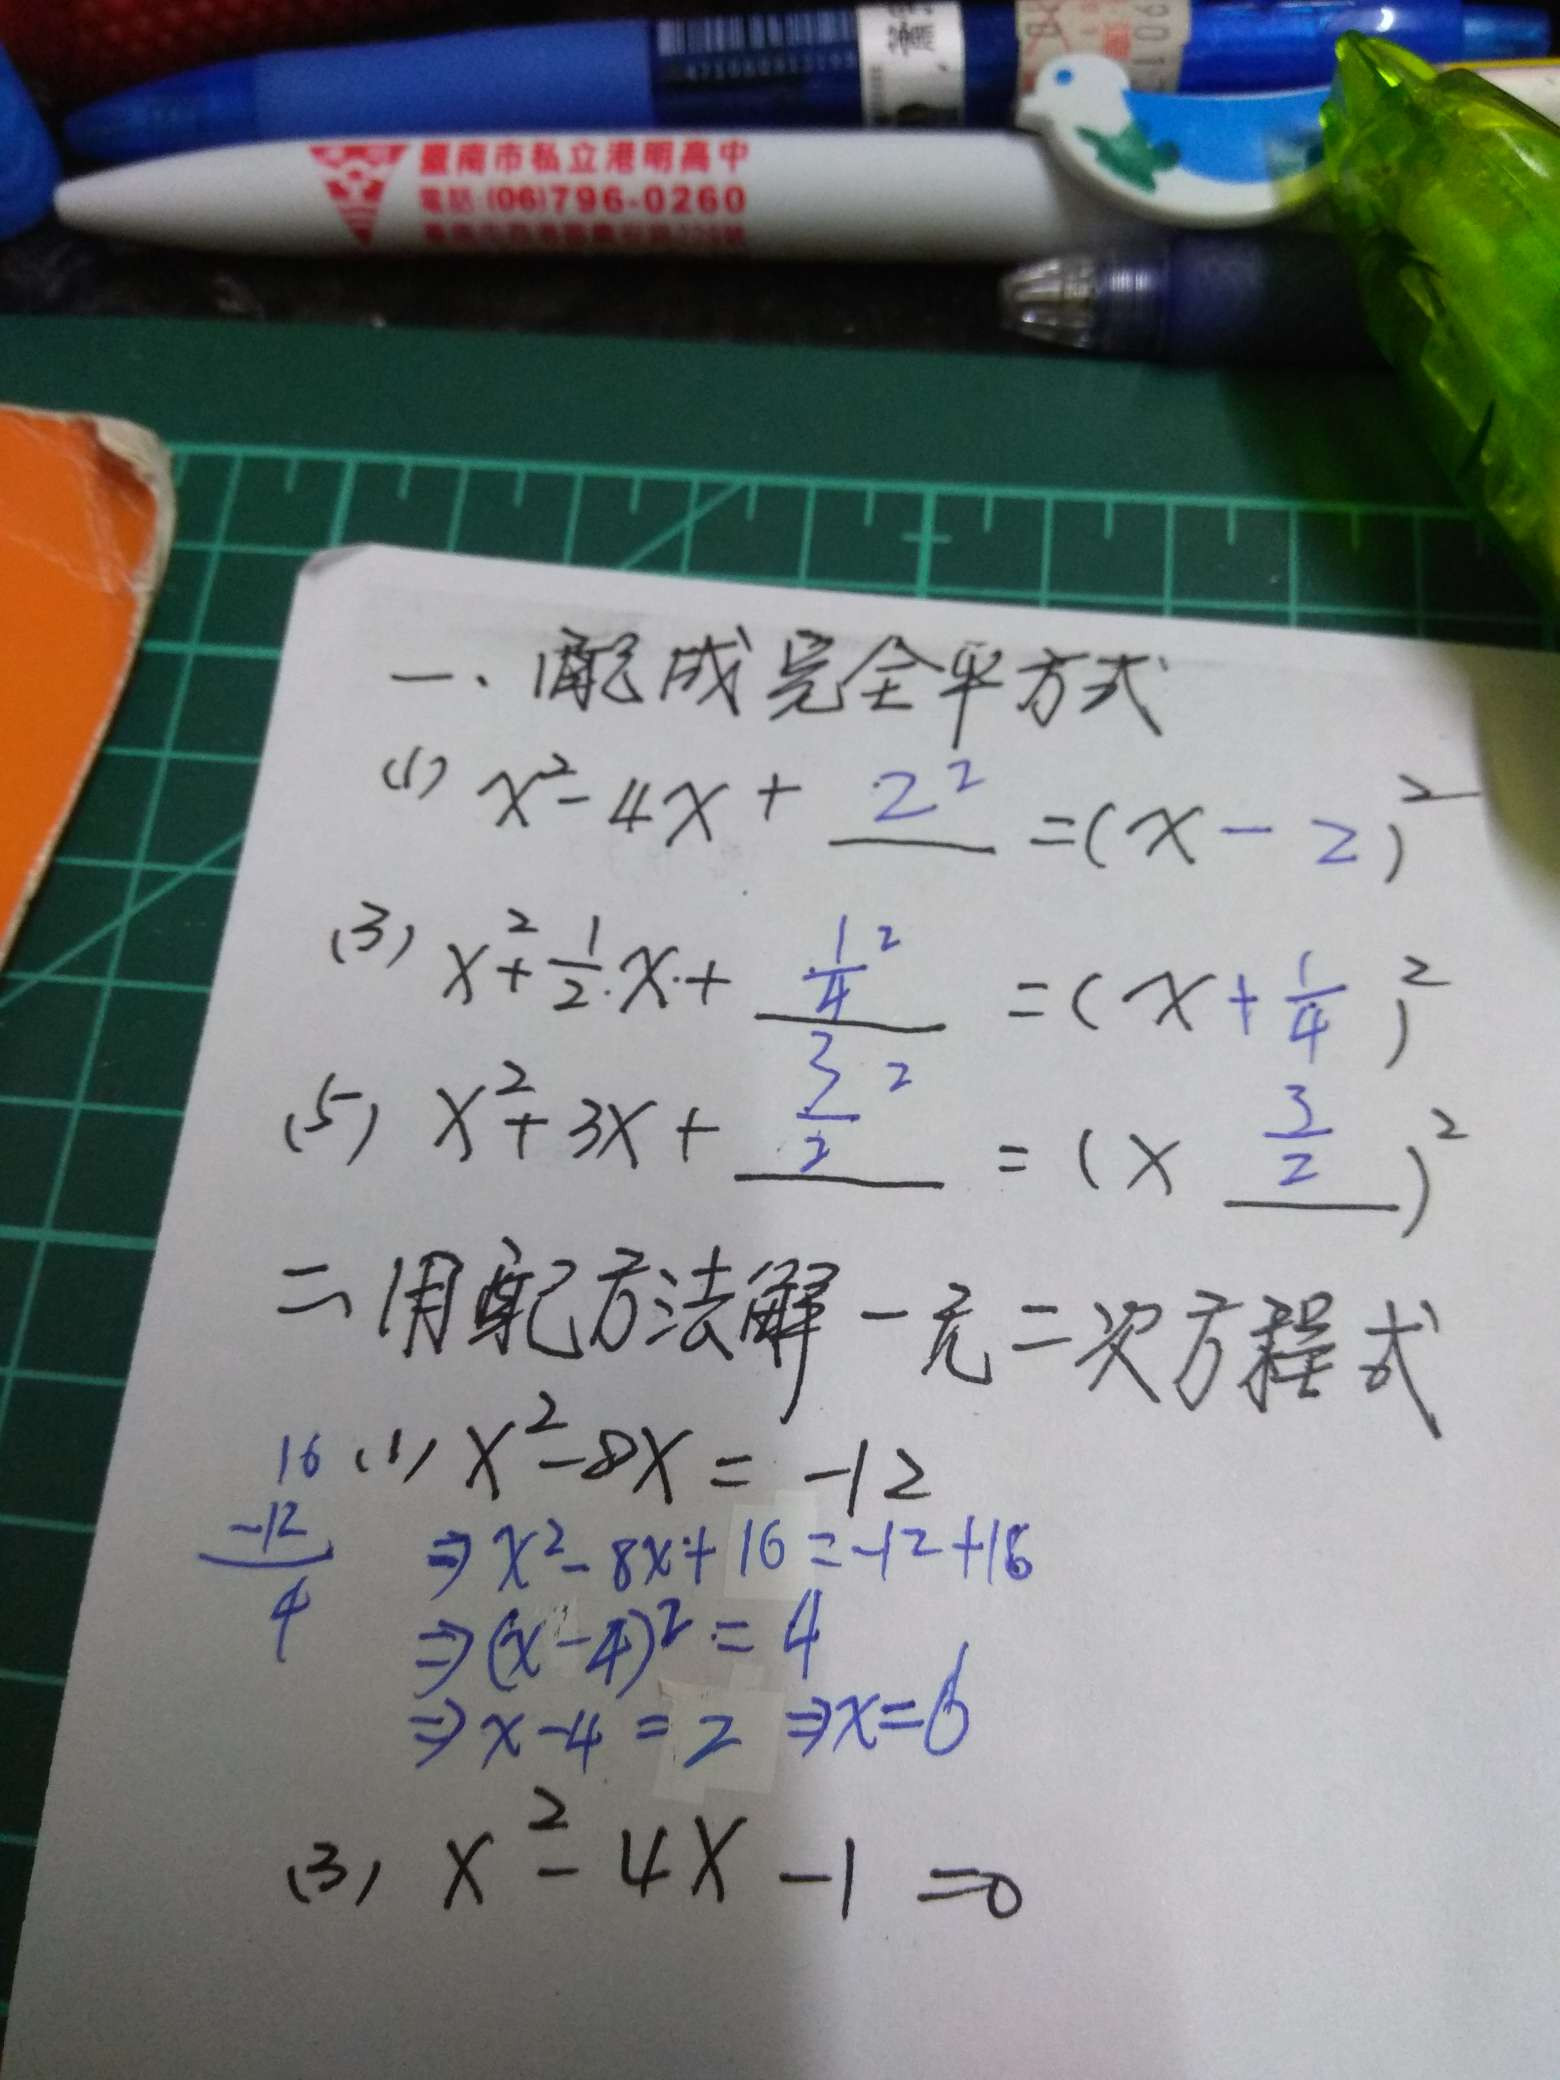 臺南市私立港明高中
電話:(06)796-0260
一、配成完全平方式
(1) x²-4x+ 2² =(x-2)²
(3) x²+1/2.x.+ 1/4² =(x+1/4)²
(5) x²+3x+ 3/2² =(x 3/2)²
二、用配方法解一元二次方程式
16 (1) x²-8x=-12
-12 ⇒x²-8x+16=-12+16
4 ⇒(x-4)²=4
⇒x-4=2 ⇒x=6
(3) x²-4x-1=0